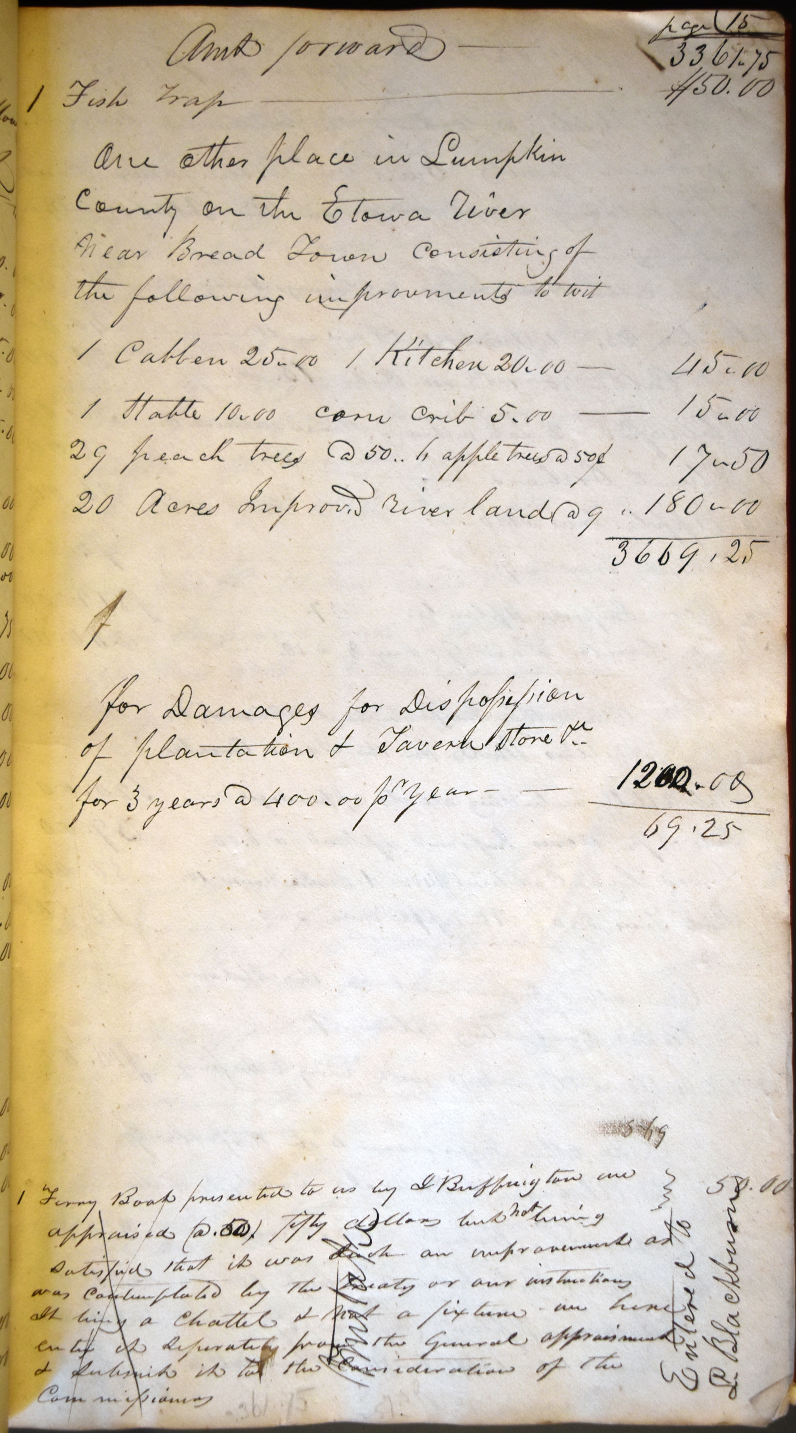 page 15
Amt forward — 3361.75
1 Fish Trap — 50.00
One other place in Lumpkin
County on the Etowa River
Near Bread Town consisting of
the following improvments to wit
1 Cabben 25.00 1 Kitchen 20.00 — 45.00
1 Stable 10.00 corn crib 5.00 — 15.00
29 peach trees @ 50.. 6 apple trees @ 50¢ 17.50
20 Acres Improvd River land @ 9 .. 180.00
3669.25
for Damages for Dispossession
of plantation & Tavern Store &c
for 3 years @ 400.00 pr year — 1200.00
69.25
569
1 Ferry Boat presented to us by J Buffington we 50.00
appraised @ 50/ fifty dollars but not being
satisfied that it was such an improvement as
was contemplated by the Treaty or our instructions
It being a Chattel & not a fixture - we have
enter it seperately from the General appraisment
& submit it to the Consideration of the
Commissioners
Entered to
L Blackburn